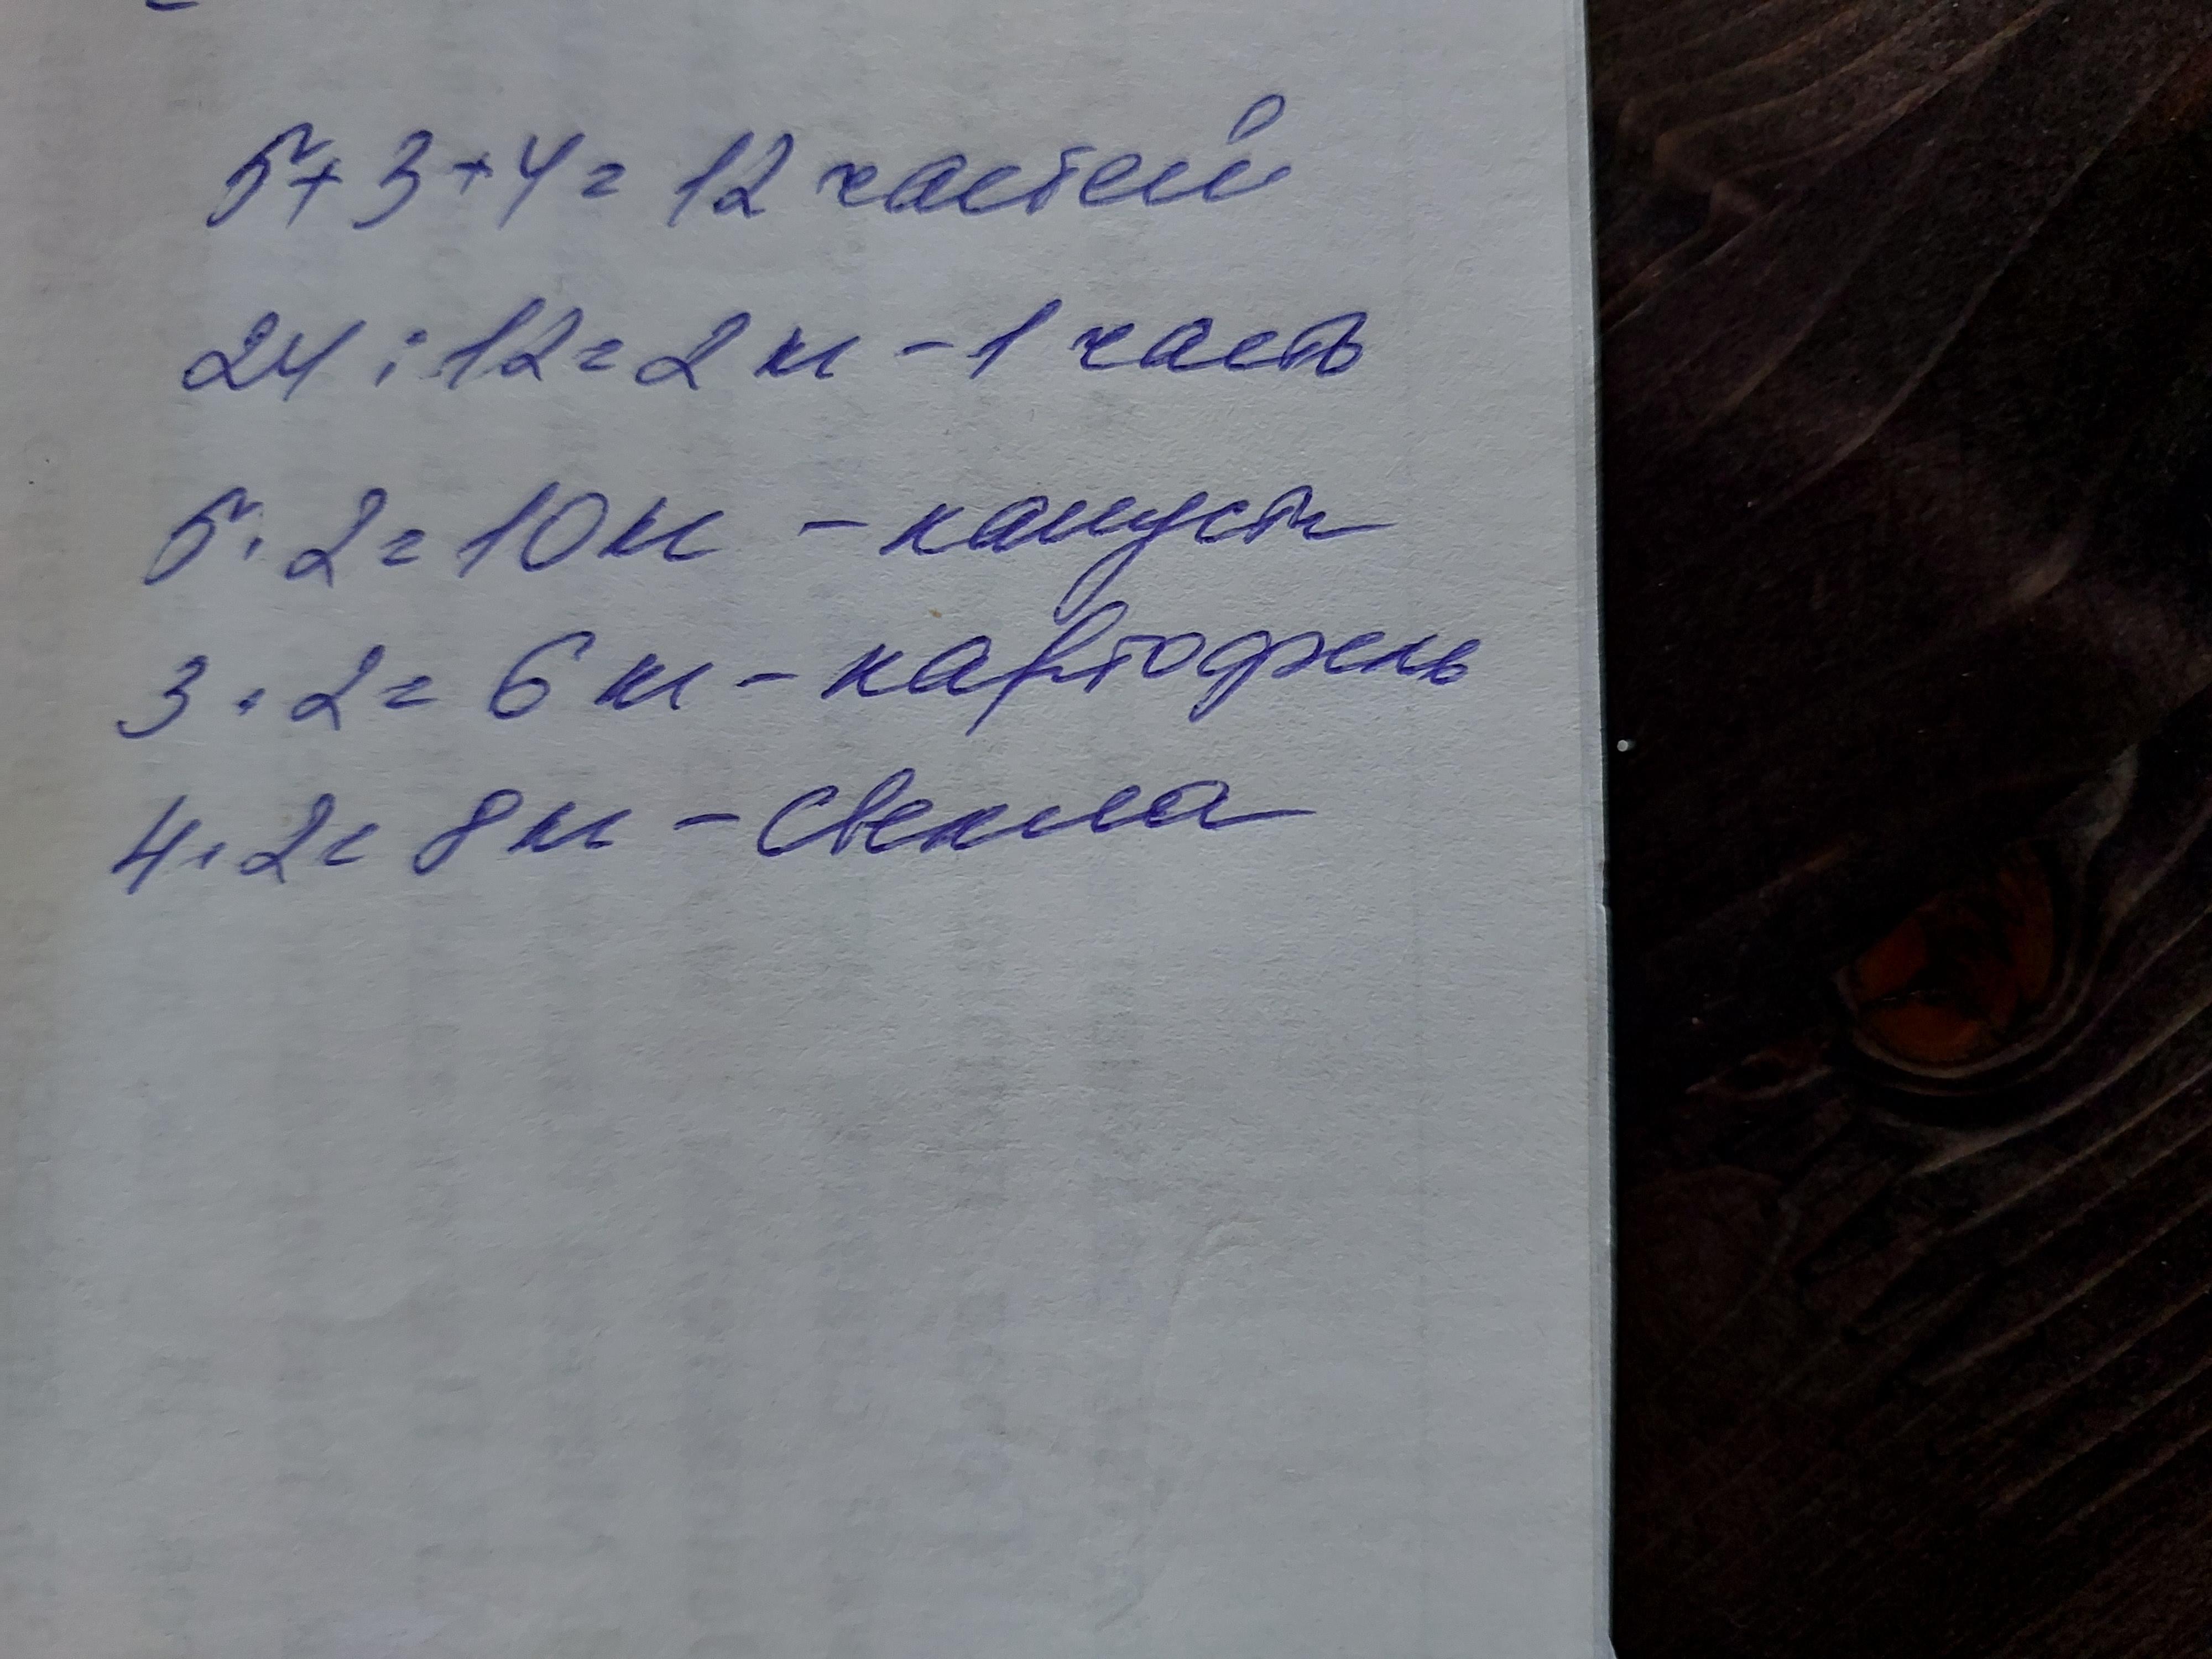 5+3+4=12 частей
24:12=2 кг - 1 часть
5·2=10 кг - капуста
3·2=6 кг - картофель
4·2=8 кг - свекла